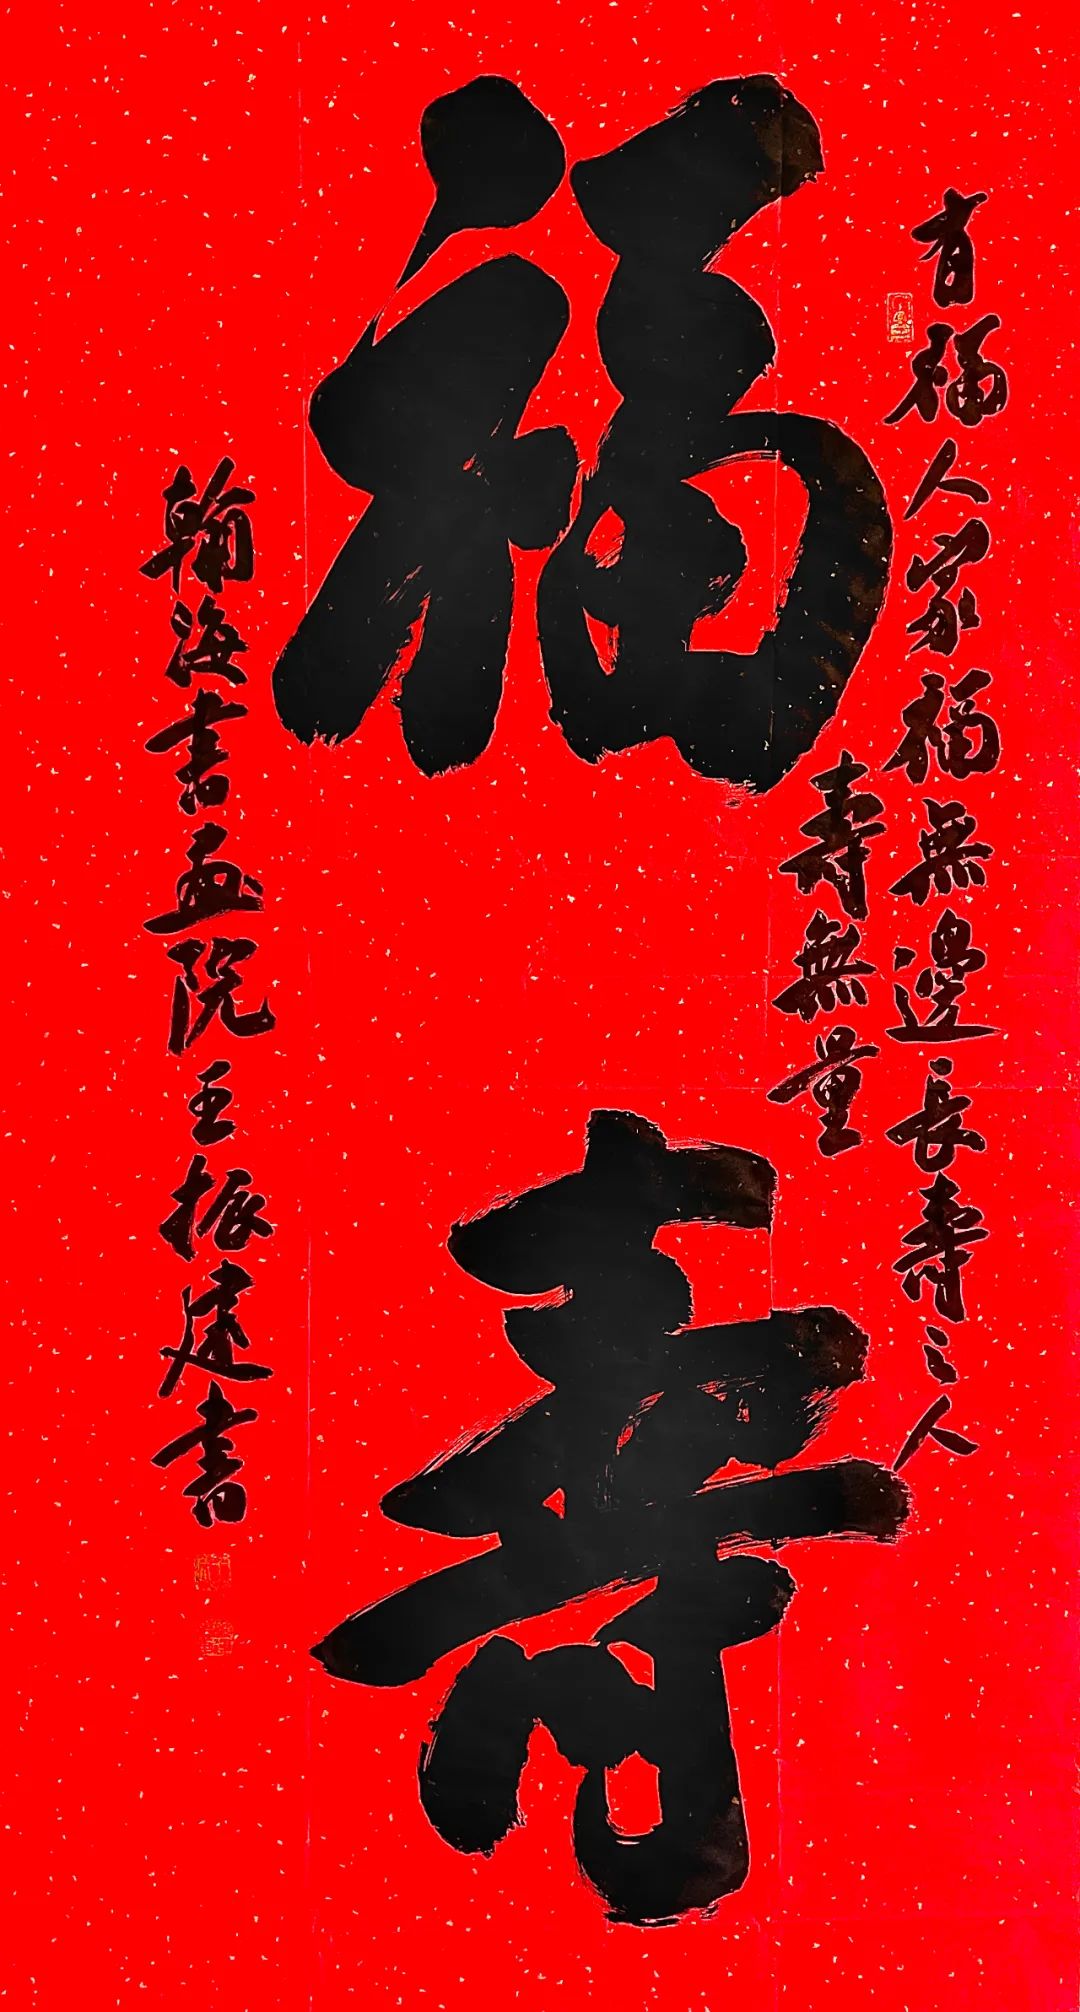 有福人家福無邊長壽之人
壽無量
福壽
翰海书画院王振建书